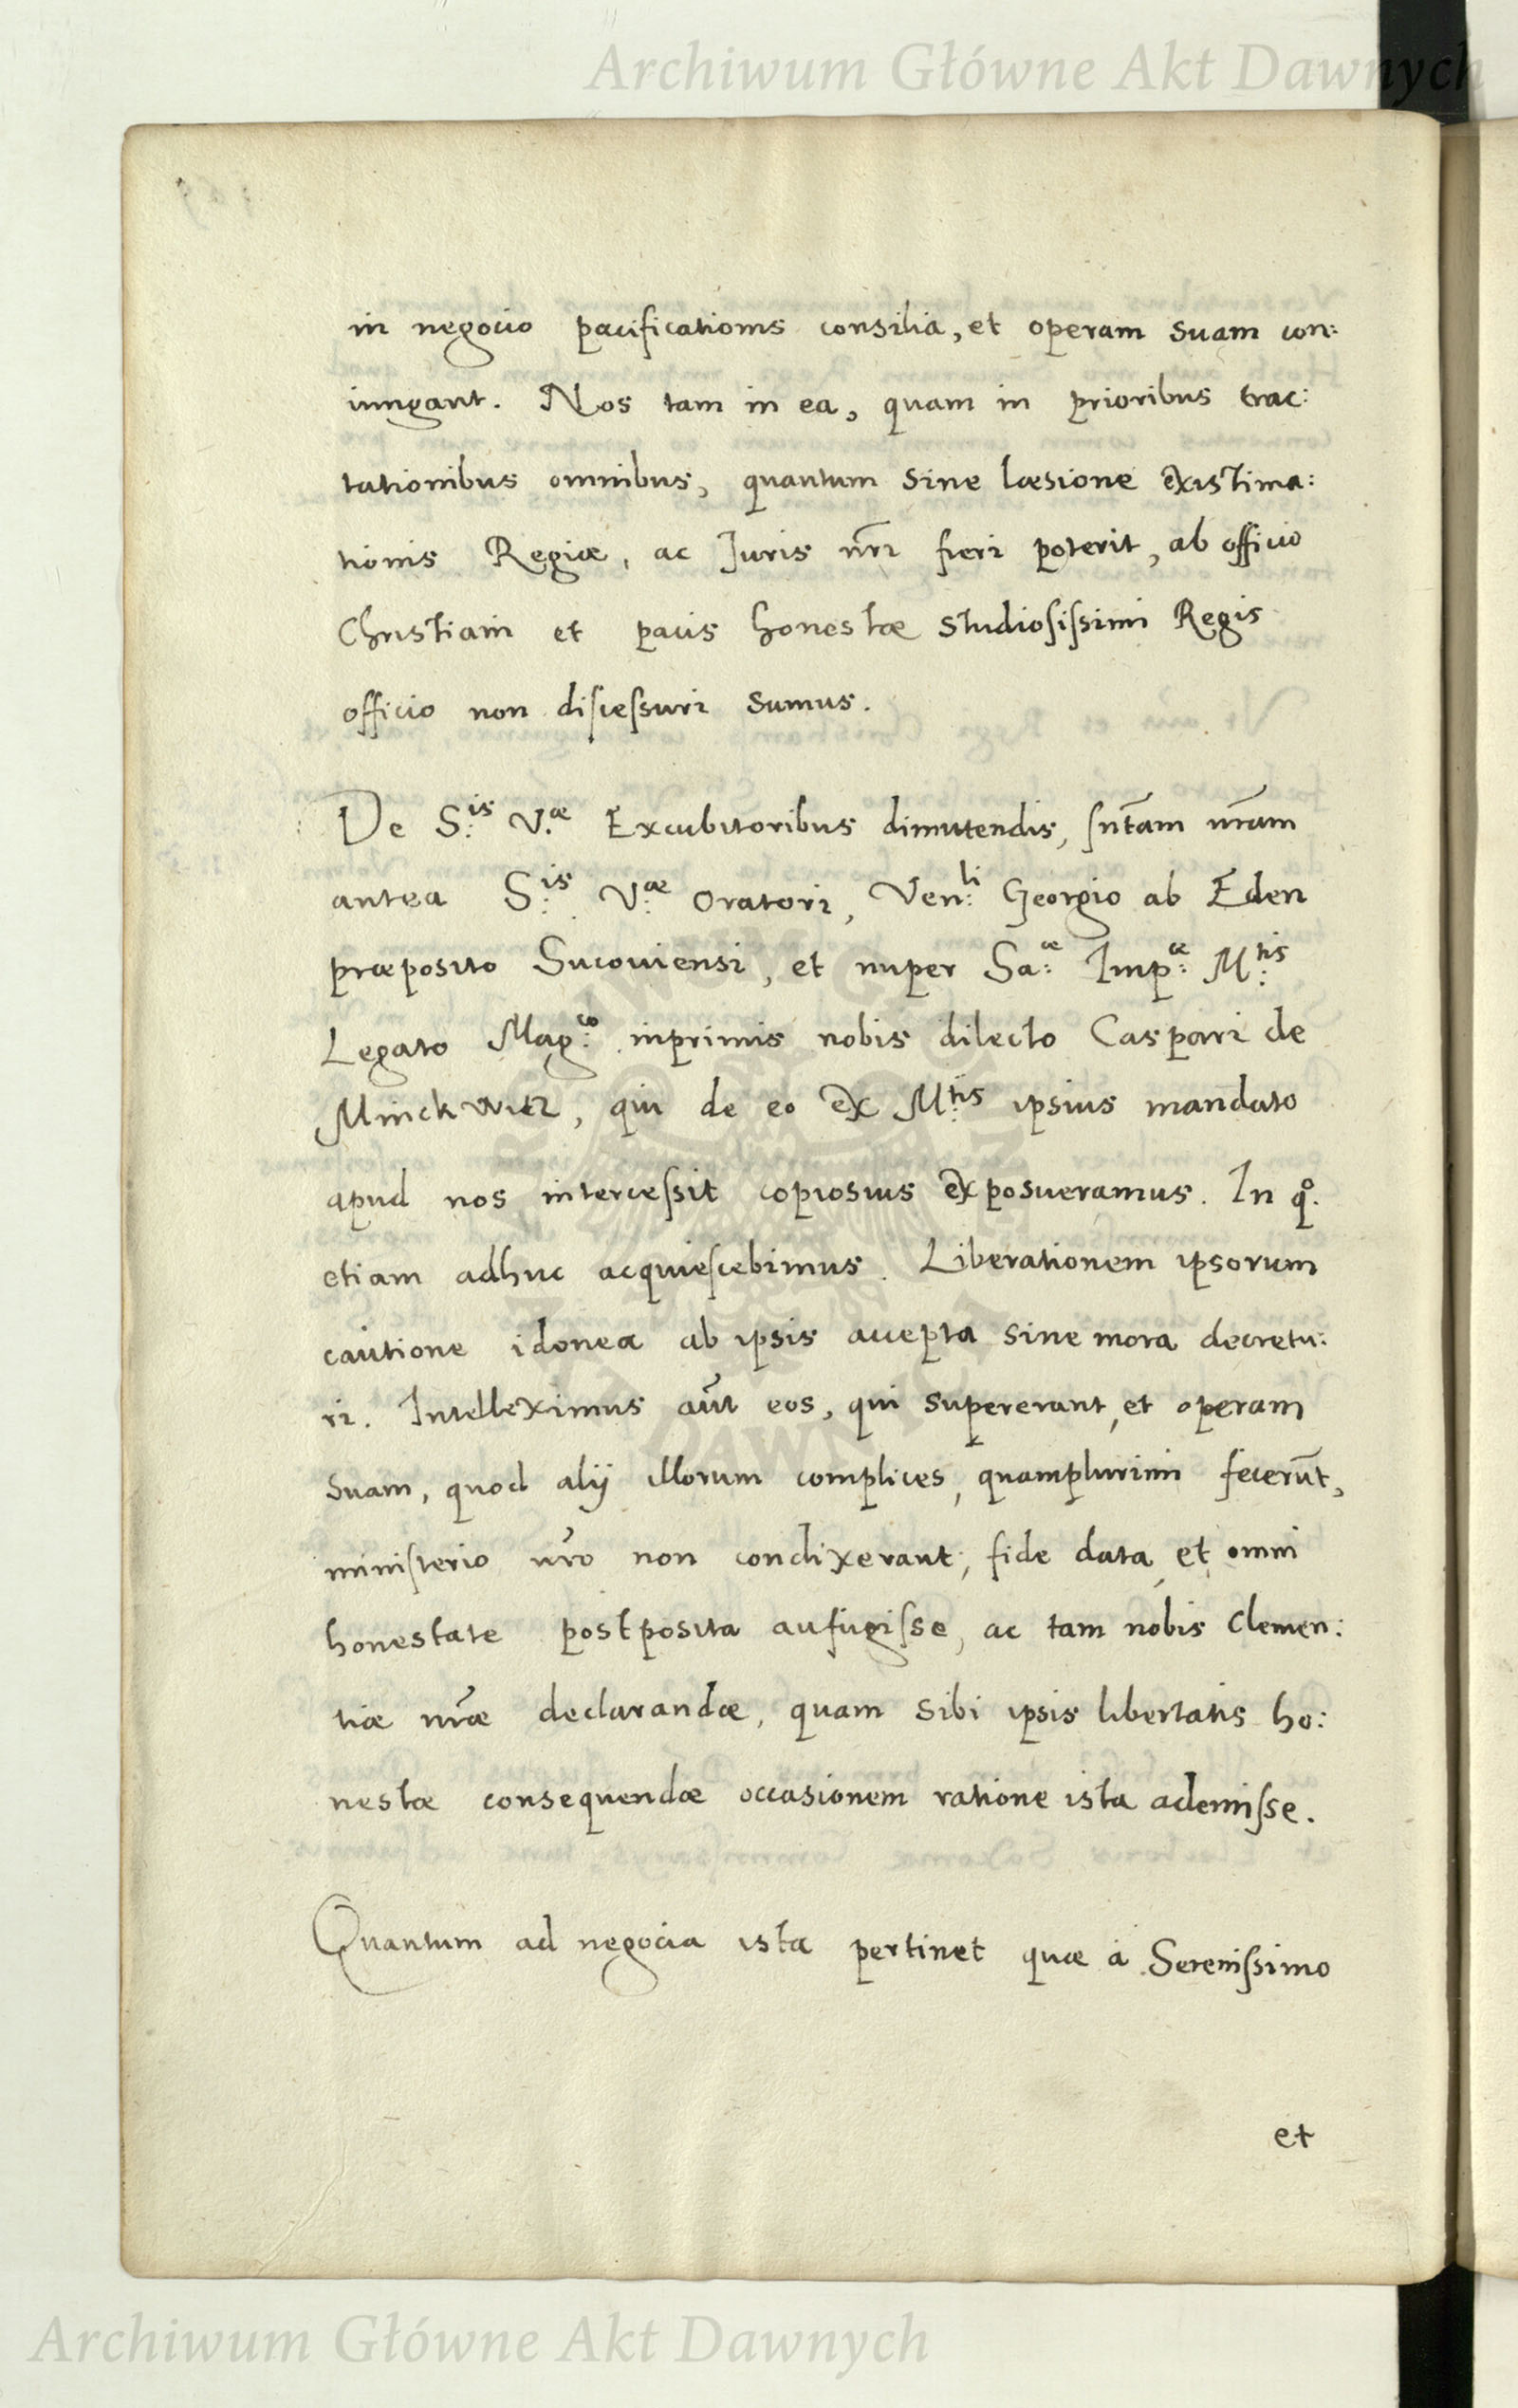 Archiwum Główne Akt Dawnych
in negocio pacificationis consilia, et operam suam con:
iungant. Nos tam in ea, quam in prioribus trac:
tationibus omnibus, quantum sine læsione existima:
tionis Regiæ, ac Iuris nr̃i fieri poterit, ab officio
Christiani et pacis honestæ studiosissimi Regis
officio non discessuri sumus.
De S:is V:æ Excubitoribus dimittendis, sñtam nr̃am
antea S:is V:æ Oratori, Ven:li Georgio ab Eden
præposito Sucouiensi, et nuper Sa:æ Imp:æ M:tis
Legato Mag:co inprimis nobis dilecto Caspari de
Minckwitz, qui de eo ex M:tis ipsius mandato
apud nos intercessit copiosius exposueramus. In qo.
etiam adhuc acquiescebimus. Liberationem ipsorum
cautione idonea ab ipsis accepta sine mora decretu:
ri. Intelleximus aũt eos, qui supererant, et operam
suam, quod alij illorum complices, quamplurimi fecerũt,
ministerio nr̃o non condixerant, fide data, et omni
honestate postposita aufugisse, ac tam nobis clemen:
tiæ nr̃æ declarandæ, quam sibi ipsis libertatis ho:
nestæ consequendæ occasionem ratione ista ademisse.
Quantum ad negocia ista pertinet quæ à Serenissimo
et
Archiwum Główne Akt Dawnych